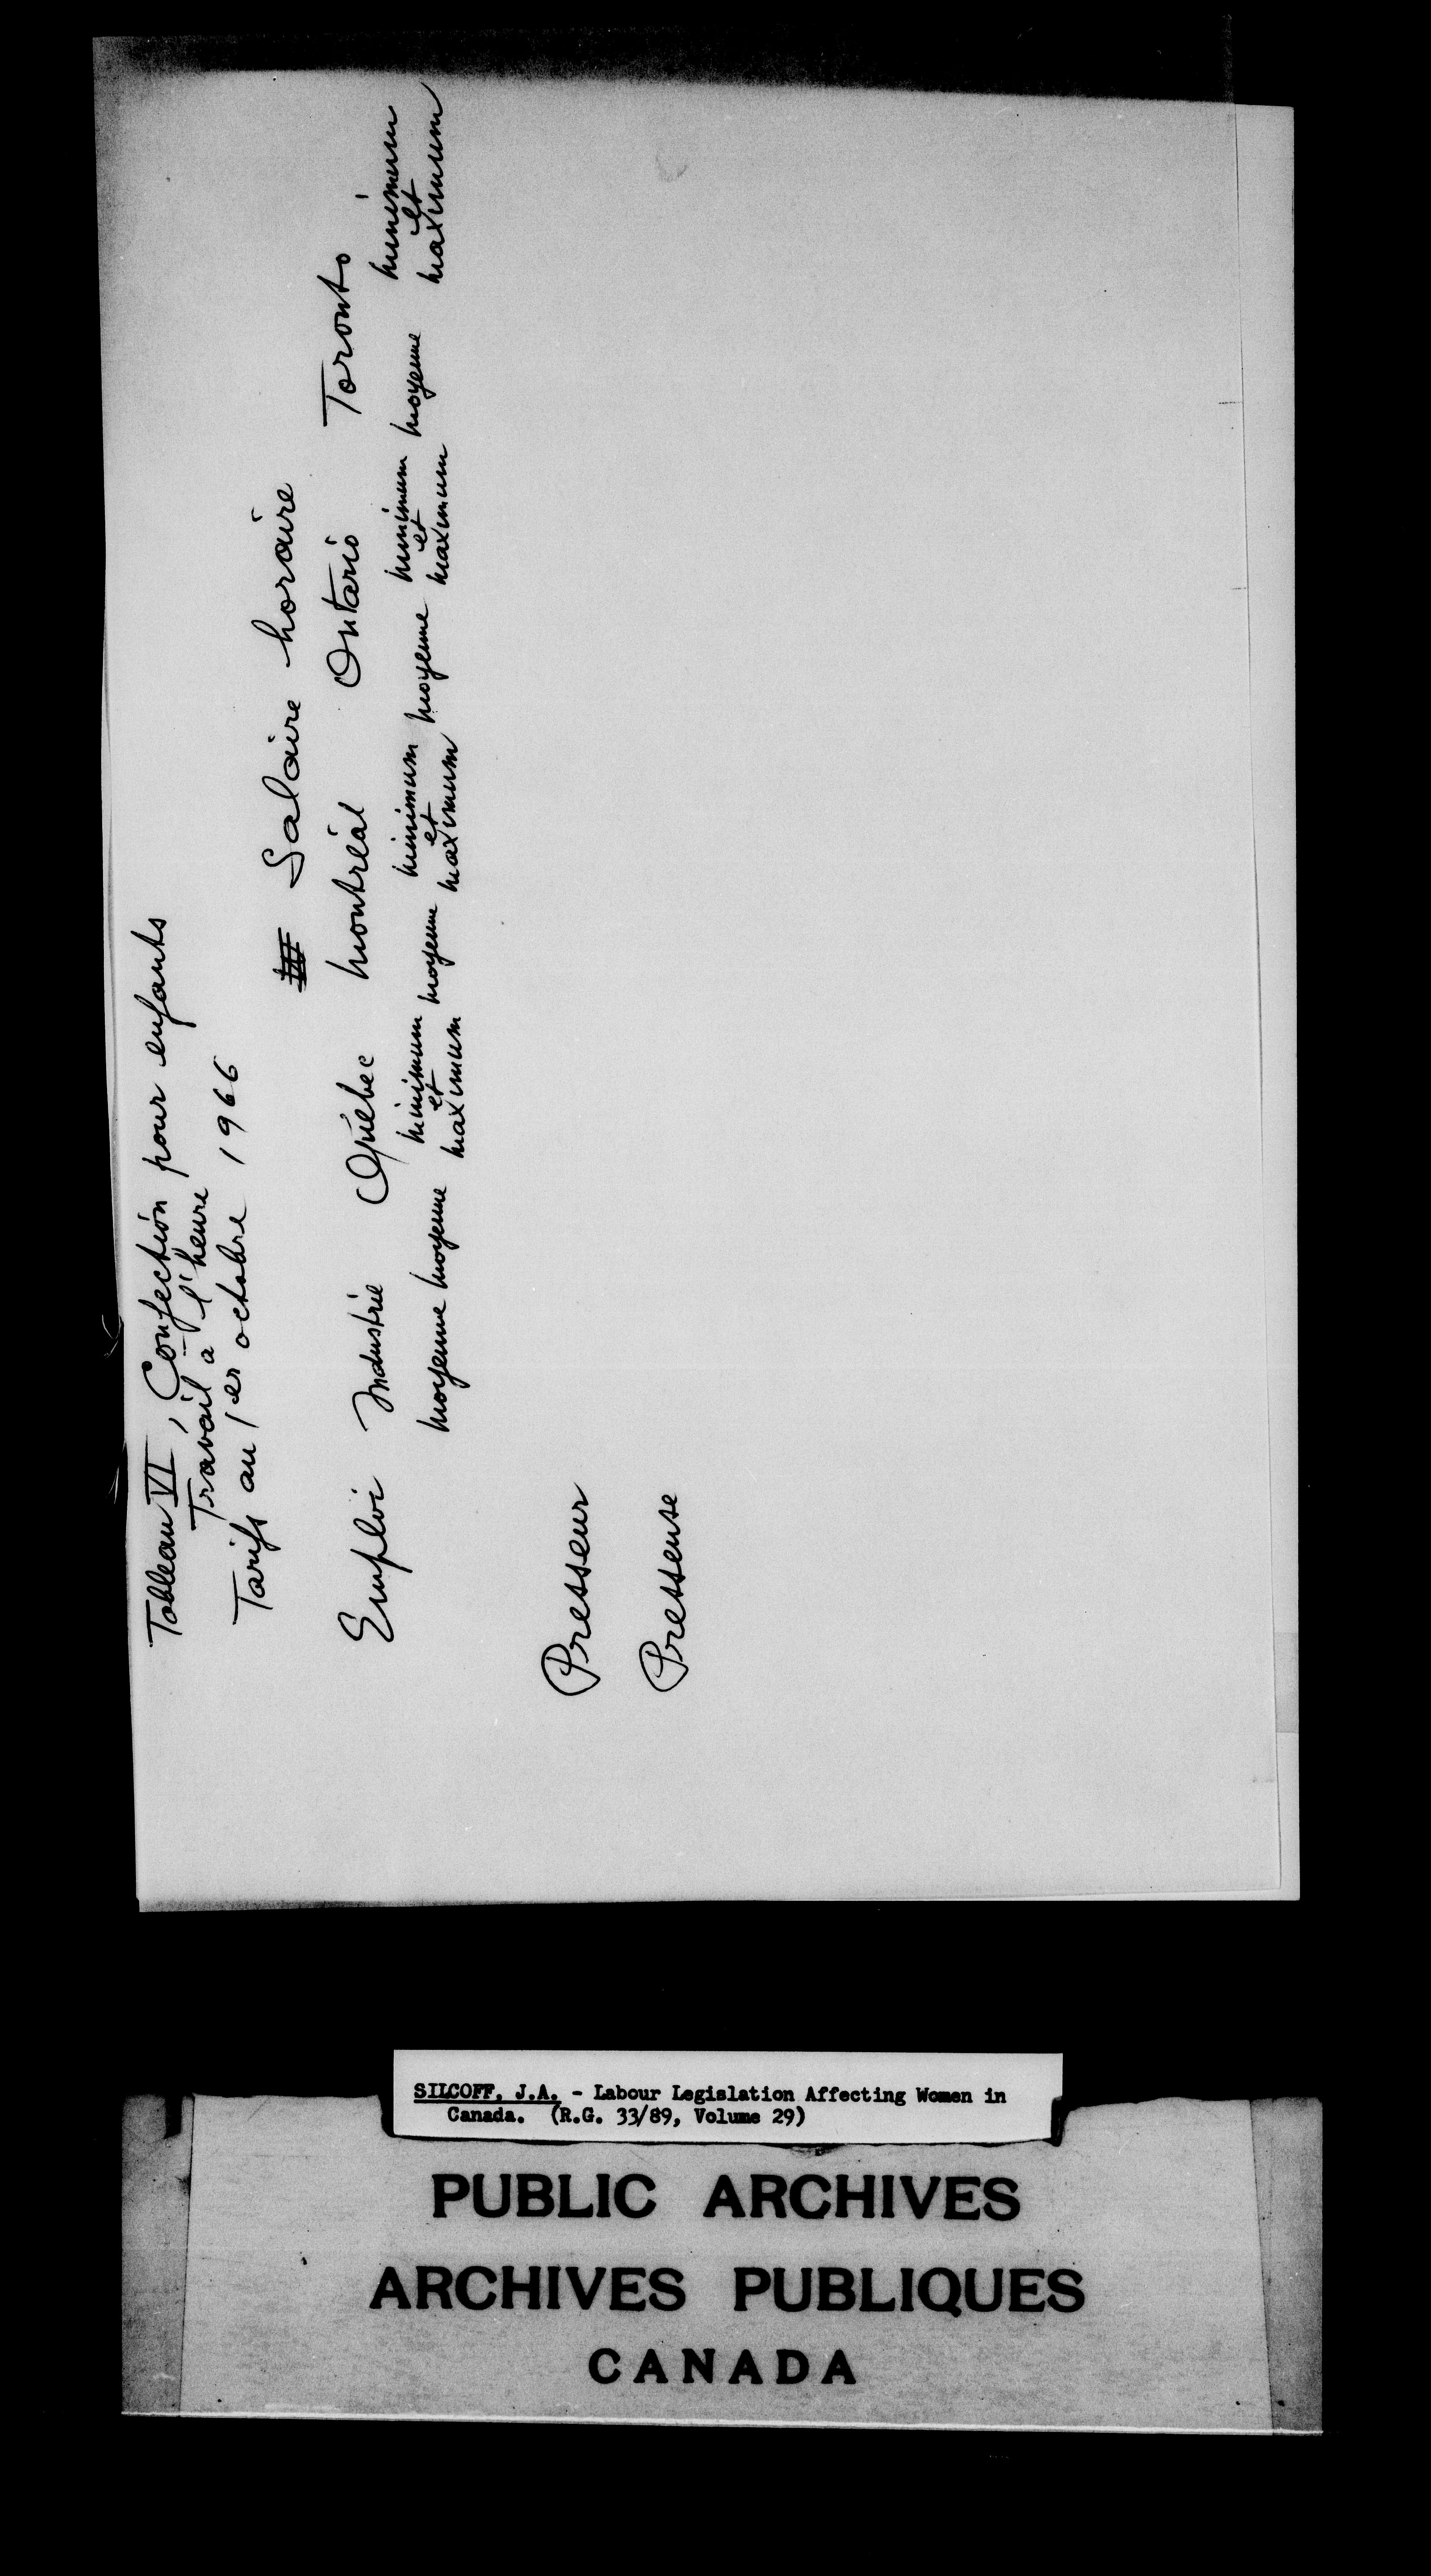 Tableau VI, Confection pour enfants
Travail à l'heure
Tarifs au 1er octobre 1966
Salaire horaire
Emploi Industrie Québec Montréal Ontario Toronto
moyenne moyenne minimum et maximum moyenne minimum et maximum moyenne minimum et maximum moyenne minimum et maximum
Presseur
Presseuse
SILCOFF, J.A. - Labour Legislation Affecting Women in
Canada. (R.G. 33/89, Volume 29)
PUBLIC ARCHIVES
ARCHIVES PUBLIQUES
CANADA